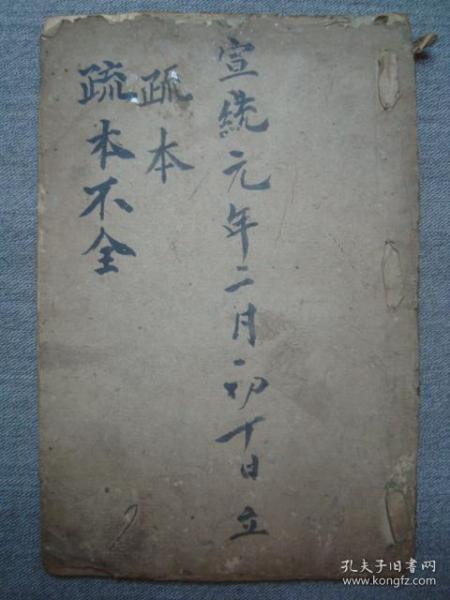 宣統元年二月初十日立
疏本
疏本不全
孔夫子旧书网
www.kongfz.com